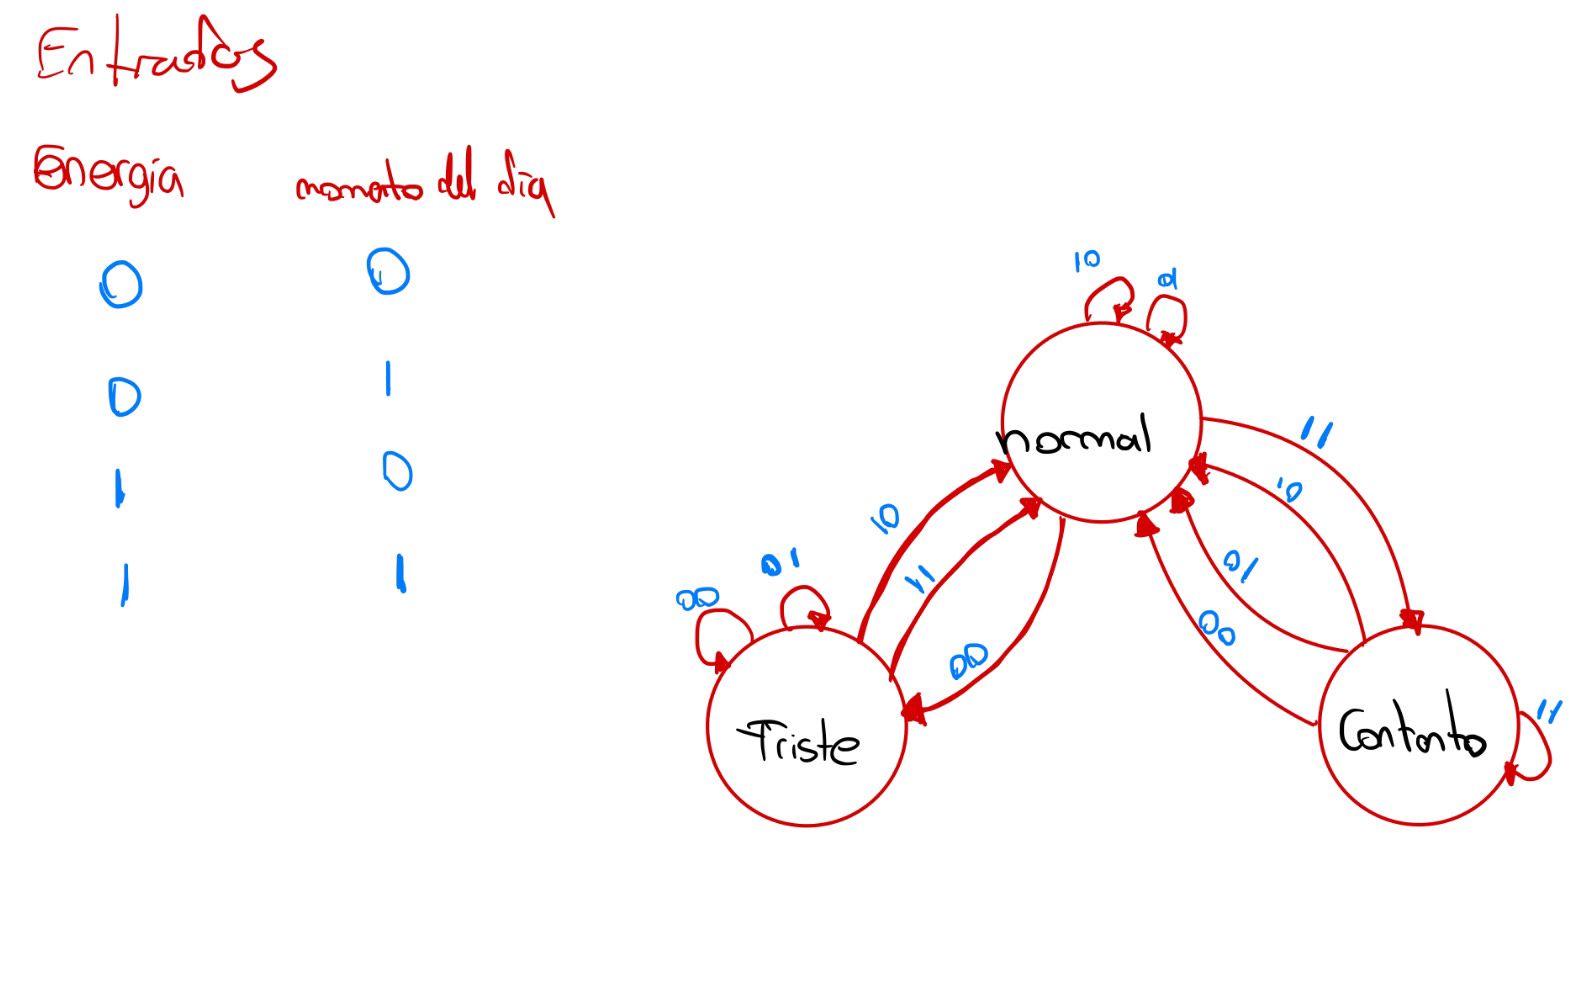 Entradas
Energía momento del día
0 0
0 1
1 0
1 1
10
01
normal
11
10
01
00
10
11
00
00
01
Triste
Contento
11